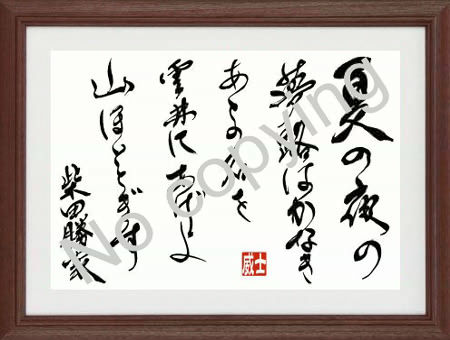 夏の夜の
夢路はかなき
あとの名を
雲井にあげよ
山ほととぎす
柴田勝家
威士
No copying